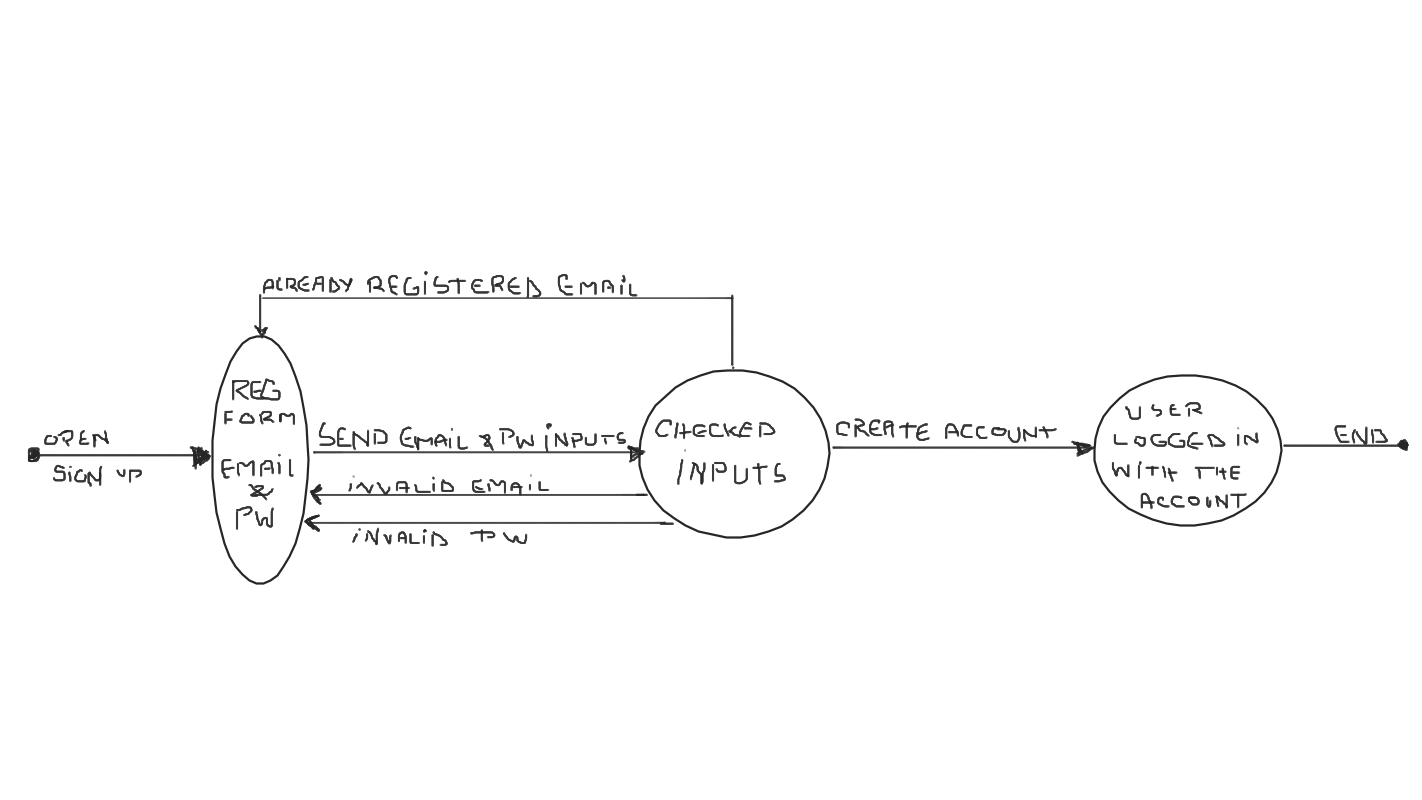 ALREADY REGISTERED EMAIL
OPEN
SIGN UP
REG
FORM
EMAIL
&
PW
SEND EMAIL & PW INPUTS
INVALID EMAIL
INVALID PW
CHECKED
INPUTS
CREATE ACCOUNT
USER
LOGGED IN
WITH THE
ACCOUNT
END